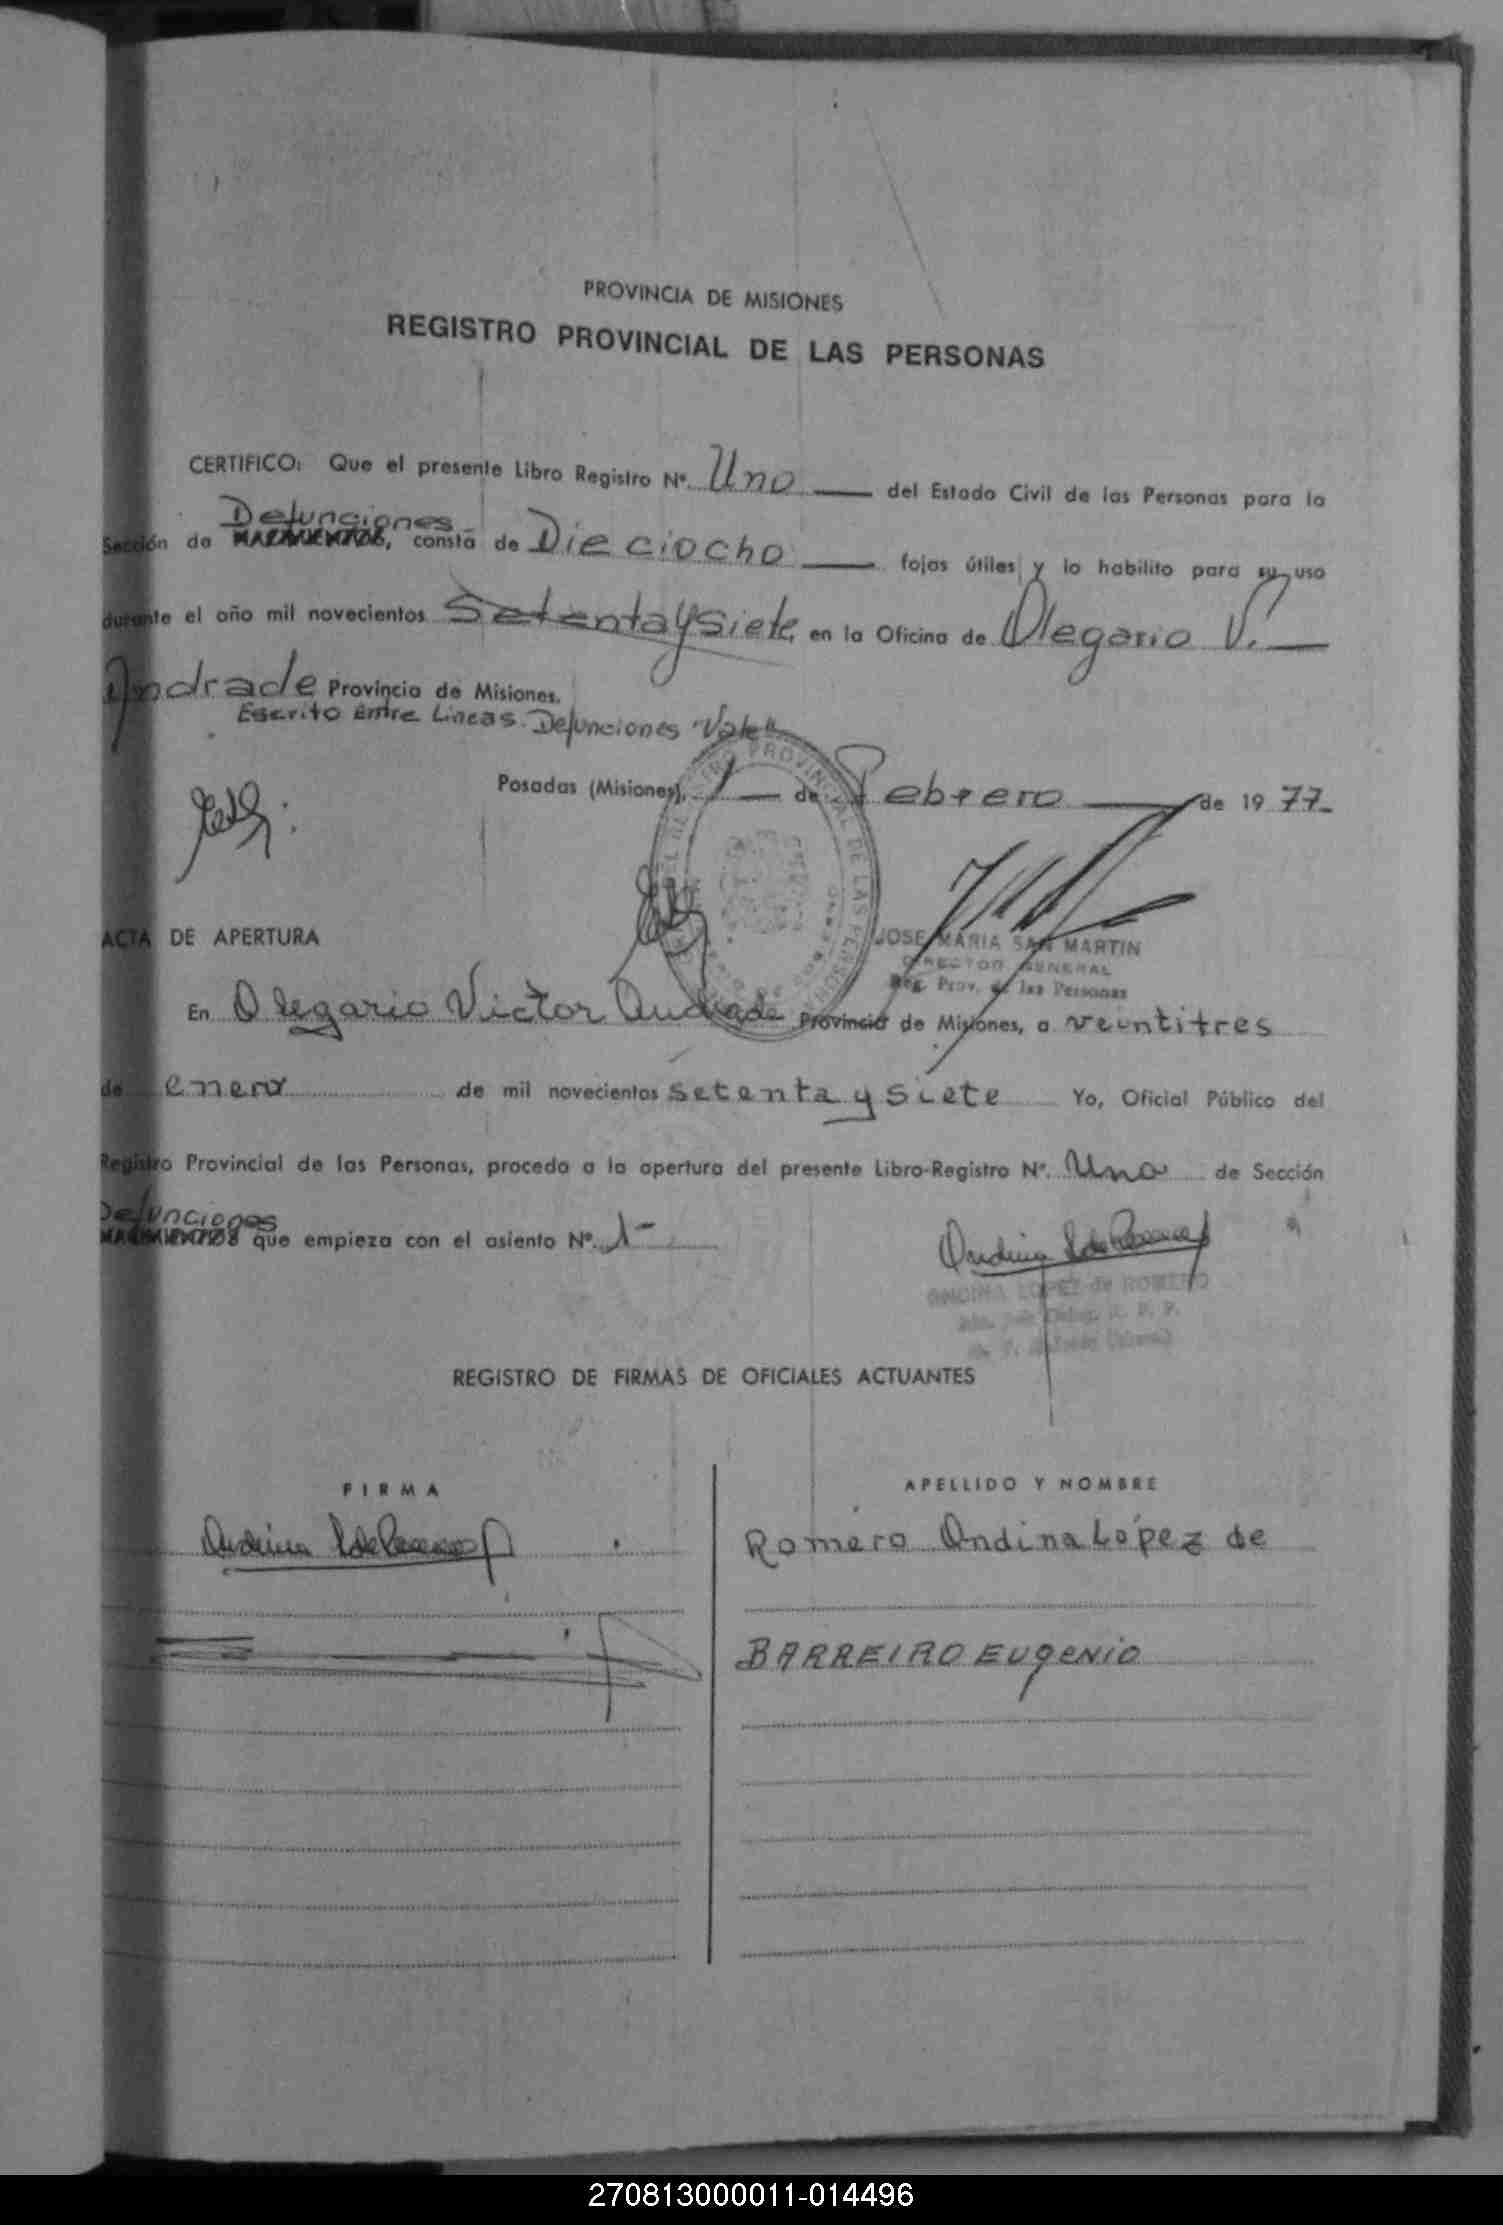 PROVINCIA DE MISIONES
REGISTRO PROVINCIAL DE LAS PERSONAS
CERTIFICO: Que el presente Libro Registro Nº. Uno del Estado Civil de las Personas para la
Defunciones
Sección de NACIMIENTOS, consta de Dieciocho fojas útiles y lo habilito para su uso
durante el año mil novecientos Setenta y Siete en la Oficina de Olegario V.
Andrade Provincia de Misiones.
Escrito Entre Lineas. Defunciones "Vale"
Posadas (Misiones), 1 de Febrero de 1977
ACTA DE APERTURA
JOSE MARIA SAN MARTIN
DIRECTOR GENERAL
Reg. Prov. de las Personas
En Olegario Victor Andrade Provincia de Misiones, a veintitres
de enero de mil novecientos setenta y siete Yo, Oficial Público del
Registro Provincial de las Personas, procedo a la apertura del presente Libro-Registro Nº. Uno de Sección
Defunciones
NACIMIENTOS que empieza con el asiento Nº. 1-
ONDINA LOPEZ de ROMERO
REGISTRO DE FIRMAS DE OFICIALES ACTUANTES
FIRMA APELLIDO Y NOMBRE
Romero Ondina López de
BARREIRO EUgENiO
270813000011-014496